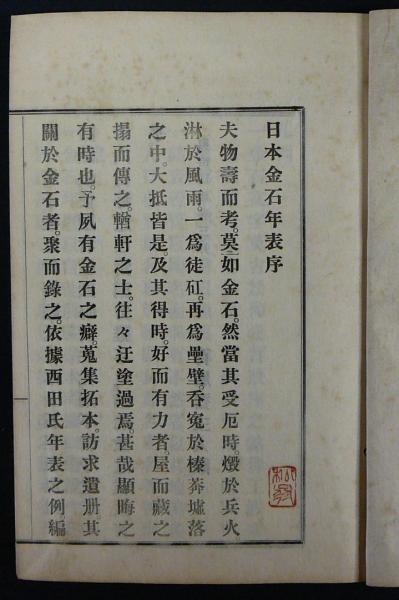 日本金石年表序
夫物壽而考。莫如金石。然當其受厄時燬於兵火
淋於風雨。一爲徒矼。再爲壘壁。呑寃於榛莽墟落
之中。大抵皆是。及其得時。好而有力者。屋而藏之
搨而傳之。輶軒之士。往々迂塗過焉甚哉顯晦之
有時也。予夙有金石之癖。蒐集拓本。訪求遺册其
關於金石者。聚而錄之。依據西田氏年表之例編